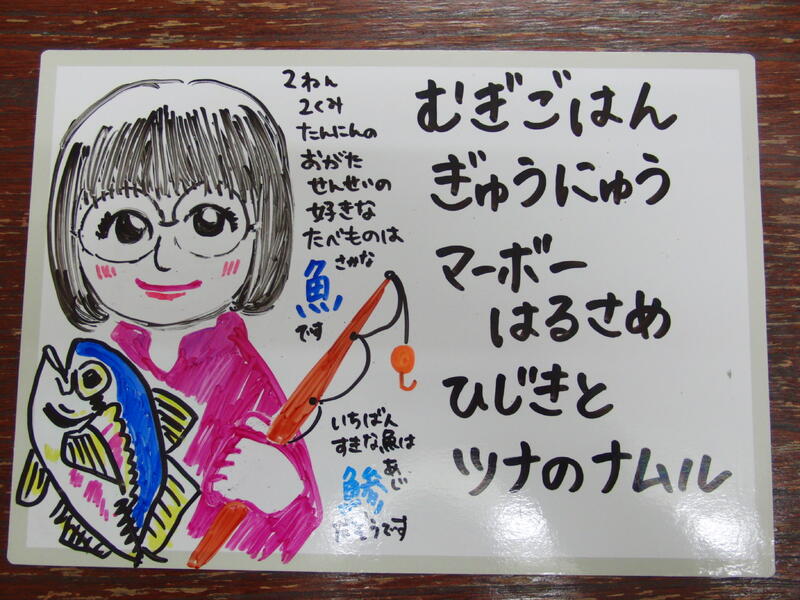 2ねん
2くみ
たんにんの
おがた
せんせいの
好きな
たべものは
さかな
魚
です
いちばん
すきな魚は
あじ
鯵
だそうです
むぎごはん
ぎゅうにゅう
マーボー
はるさめ
ひじきと
ツナのナムル